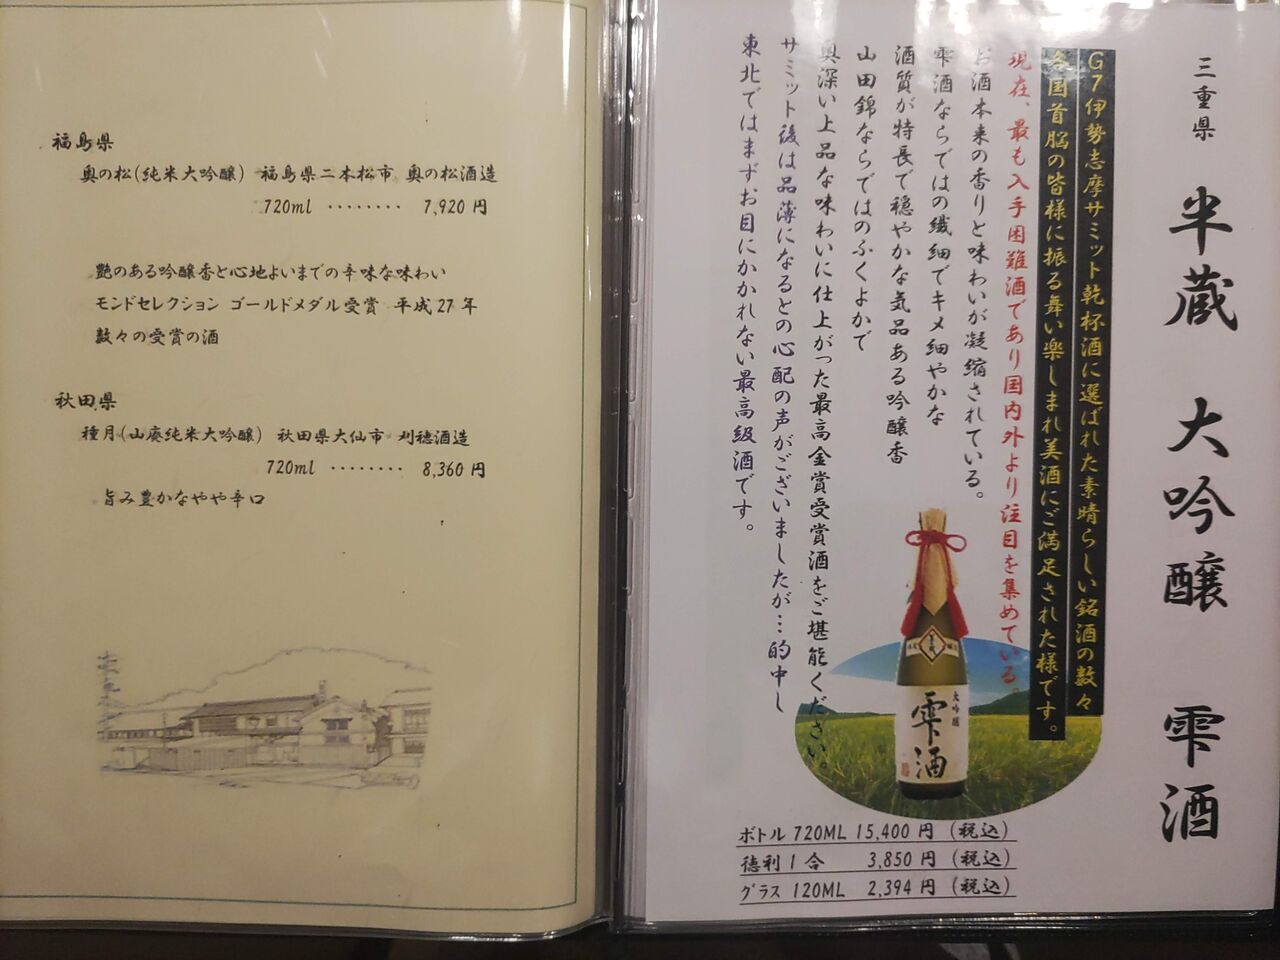 福島県
奥の松(純米大吟醸) 福島県二本松市 奥の松酒造
720ml ‥‥‥‥ 7,920 円
艶のある吟醸香と心地よいまでの辛味な味わい
モンドセレクション ゴールドメダル受賞 平成27年
数々の受賞の酒
秋田県
種月(山廃純米大吟醸) 秋田県大仙市 刈穂酒造
720ml ‥‥‥‥ 8,360 円
旨み豊かなやや辛口
三重県 半蔵 大吟醸 雫酒
G7伊勢志摩サミット乾杯酒に選ばれた素晴らしい銘酒の数々
各国首脳の皆様に振る舞い楽しまれ美酒にご満足された様です。
現在、最も入手困難酒であり国内外より注目を集めている。
お酒本来の香りと味わいが凝縮されている。
雫酒ならではの繊細でキメ細やかな
酒質が特長で穏やかな気品ある吟醸香
山田錦ならではのふくよかで
奥深い上品な味わいに仕上がった最高金賞受賞酒をご堪能ください。
サミット後は品薄になるとの心配の声がございましたが…的中し
東北ではまずお目にかかれない最高級酒です。
大吟醸
雫酒
ボトル 720ML 15,400 円 (税込)
徳利1合 3,850 円 (税込)
グラス 120ML 2,394 円 (税込)